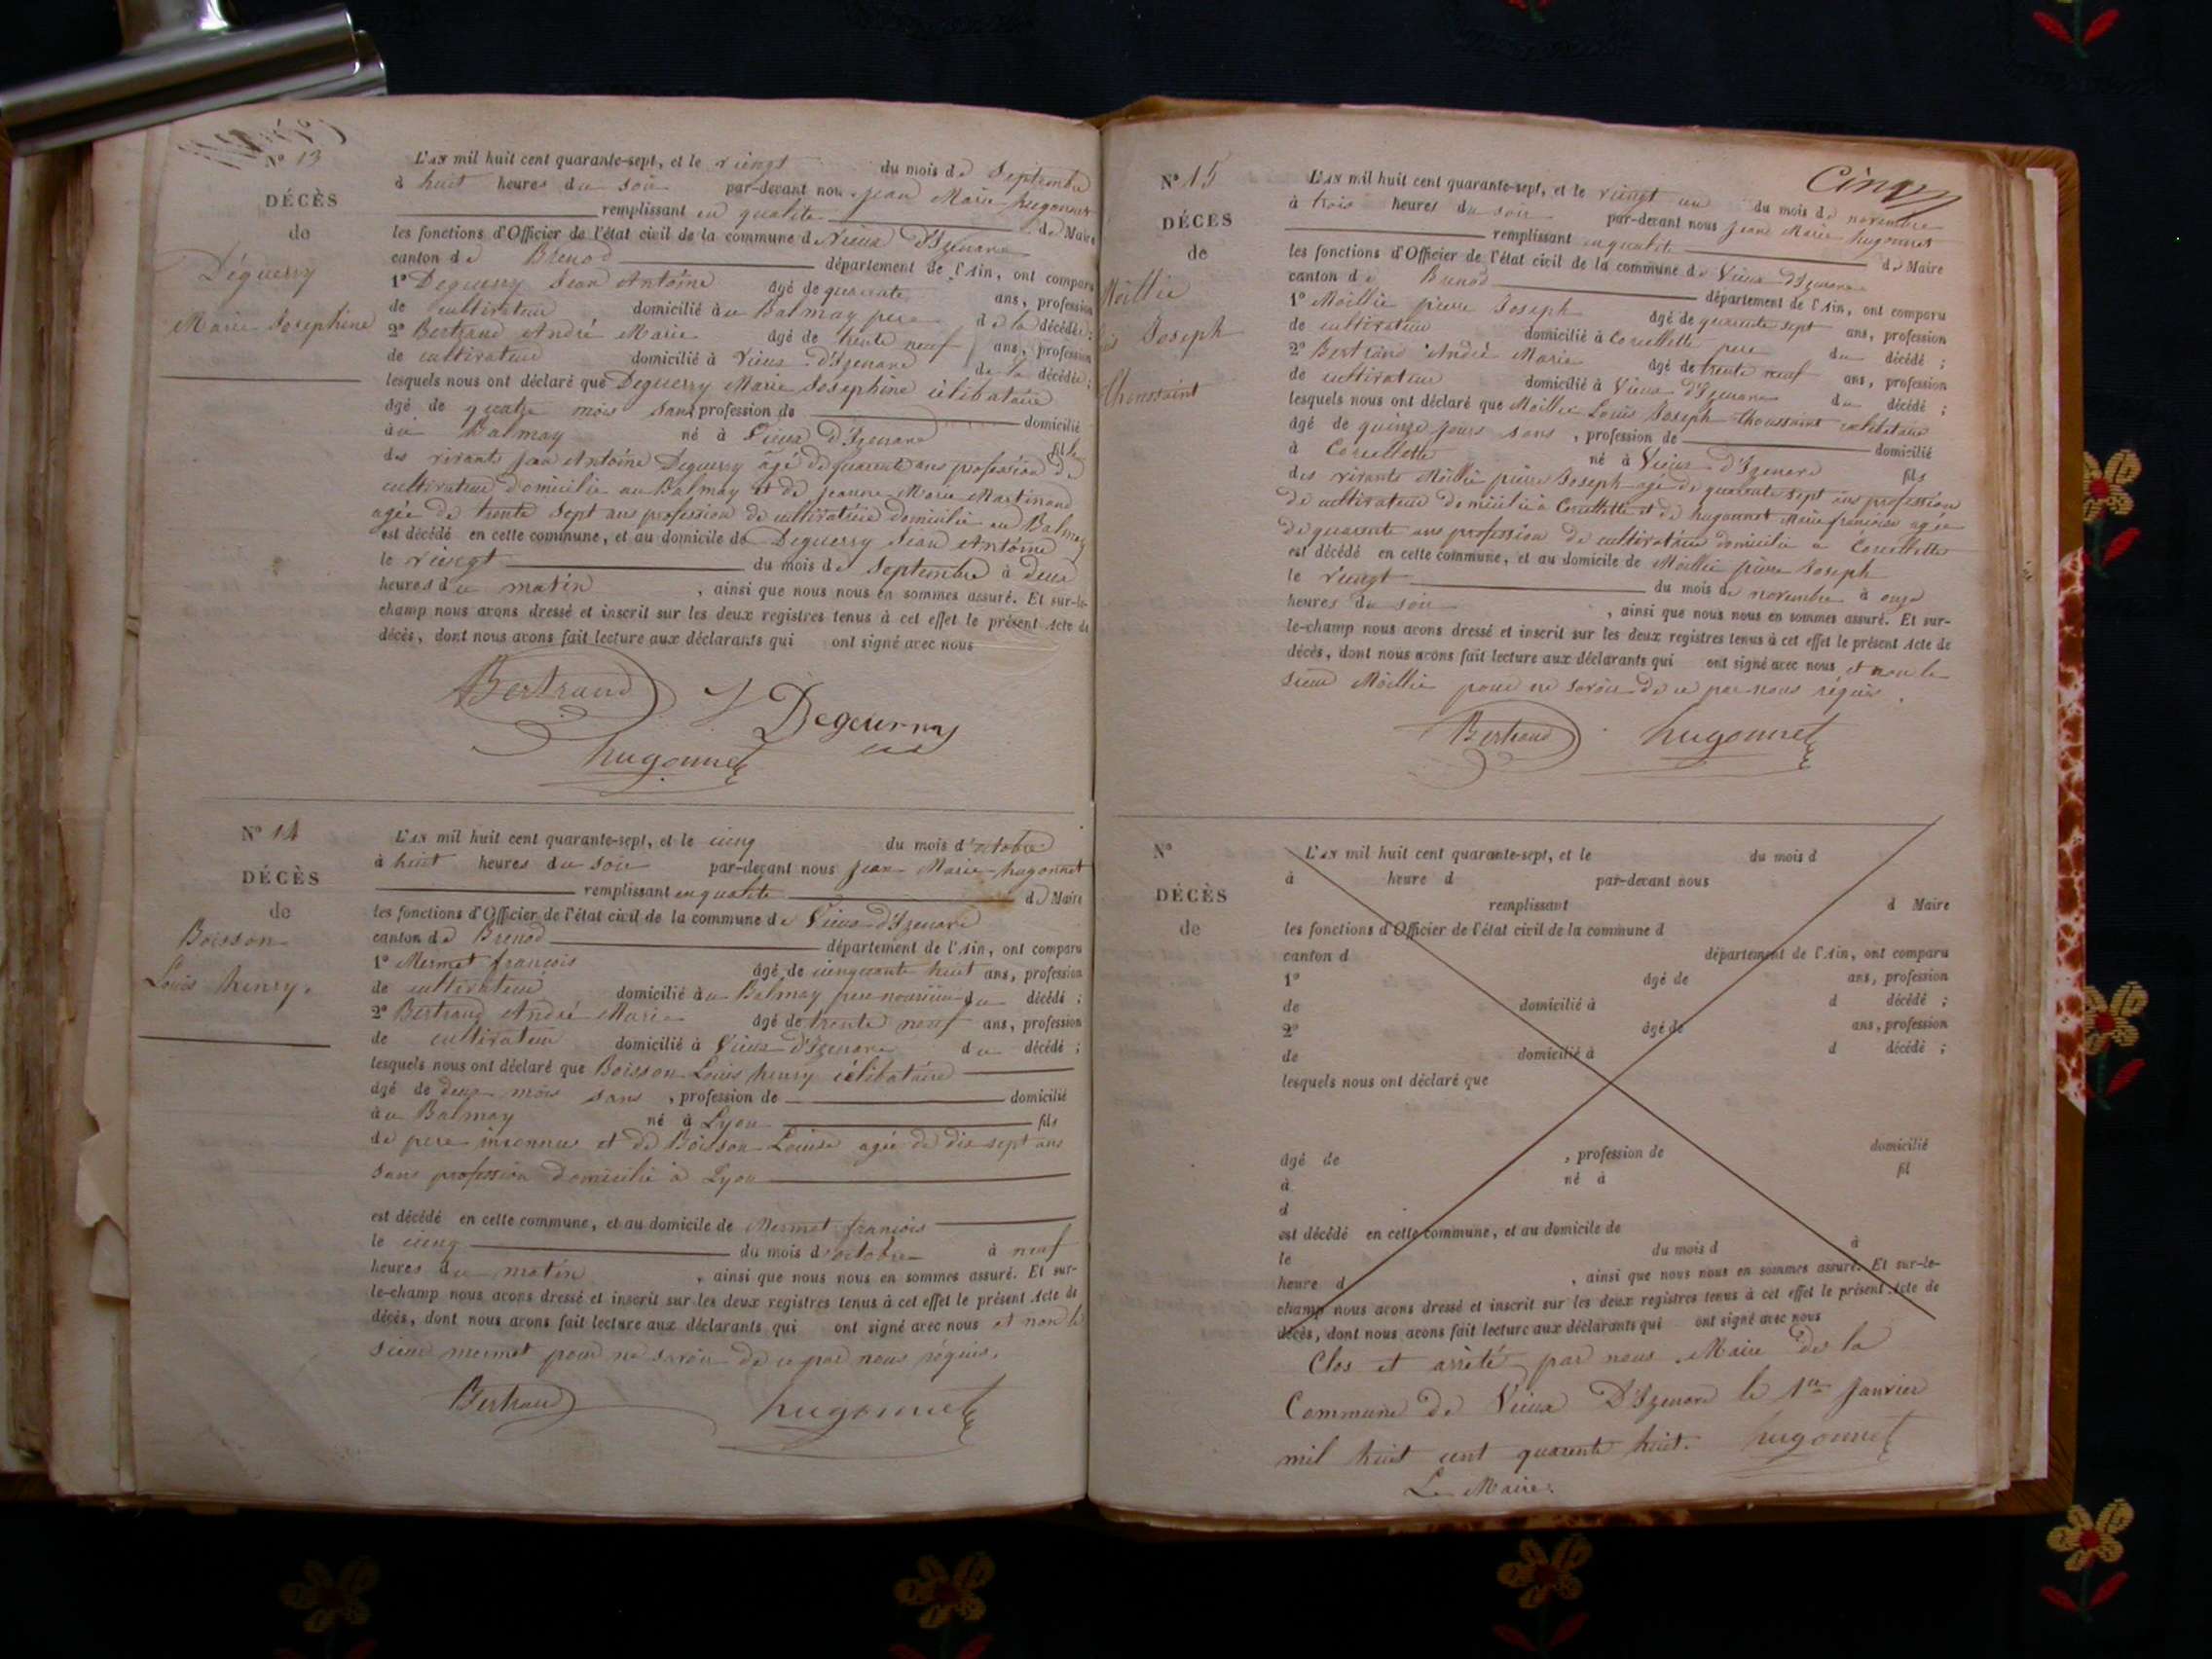 Nº 13
DÉCÈS
de
Déguerry
Marie Josephine
L'AN mil huit cent quarante-sept, et le vingt du mois de Septembre
à huit heures du soir par-devant nous jean Marie hugonnet
remplissant en qualite de Maire
les fonctions d'Officier de l'état civil de la commune de Vieux d'Izenave
canton de Brenod département de l'Ain, ont comparu
1º Deguerry Jean Antoine âgé de quarante ans, profession
de cultivateur domicilié au Balmay pere de la décédée ;
2º Bertrand André Marie âgé de trente neuf ans, profession
de cultivateur domicilié à Vieux d'Izenave de la décédée ;
lesquels nous ont déclaré que Deguerry Marie Josephine célibataire
âgé de quatre mois sans profession de domicilié
au Balmay né à Vieux d'Izenave fille
des vivants jean Antoine Deguerry âgé de quarante ans profession de
cultivateur domicilié au Balmay et de jeanne Marie Martinand
agée de trente sept ans profession de cultivatrice domicilie au Balmay
est décédé en cette commune, et au domicile de Deguerry Jean Antoine
le vingt du mois de Septembre à deux
heures du matin , ainsi que nous nous en sommes assuré. Et sur-le-
champ nous avons dressé et inscrit sur les deux registres tenus à cet effet le présent Acte de
décès, dont nous avons fait lecture aux déclarants qui ont signé avec nous
Bertrand Degeurry
hugonnet
Nº 14
DÉCÈS
de
Boisson
Louis henry.
L'AN mil huit cent quarante-sept, et le cinq du mois d'octobre
à huit heures du soir par-devant nous jean Marie hugonnet
remplissant en qualite de Maire
les fonctions d'Officier de l'état civil de la commune de Vieux d'Izenave
canton de Brenod département de l'Ain, ont comparu
1º Mermet francois âgé de cinquante huit ans, profession
de cultivateur domicilié au Balmay pere nourricier du décédé ;
2º Bertrand André Marie âgé de trente neuf ans, profession
de cultivateur domicilié à Vieux d'Izenave du décédé ;
lesquels nous ont déclaré que Boisson Louis henry célibataire
âgé de deux mois sans , profession de domicilié
au Balmay né à Lyon fils
de pere inconnu et de Boisson Louise agée de dix sept ans
sans profession domicilié à Lyon
est décédé en cette commune, et au domicile de Mermet francois
le cinq du mois d'octobre à neuf
heures du matin , ainsi que nous nous en sommes assuré. Et sur-
le-champ nous avons dressé et inscrit sur les deux registres tenus à cet effet le présent Acte de
décès, dont nous avons fait lecture aux déclarants qui ont signé avec nous et non le
sieur mermet pour ne savoir de ce par nous réquis.
Bertrand hugonnet
Cinq
Nº 15
DÉCÈS
de
Moillie
Joseph
Thoussaint
L'AN mil huit cent quarante-sept, et le vingt un du mois de novembre
à trois heures du soir par-devant nous jean Marie hugonnet
remplissant en qualite de Maire
les fonctions d'Officier de l'état civil de la commune de Vieux d'Izenave
canton de Brenod département de l'Ain, ont comparu
1º Moillie pierre Joseph âgé de quarante sept ans, profession
de cultivateur domicilié à Corcellette pere du décédé ;
2º Bertrand André Marie âgé de trente neuf ans, profession
de cultivateur domicilié à Vieux d'Izenave du décédé ;
lesquels nous ont déclaré que Moillie Louis Joseph Thoussaint célibataire
âgé de quinze jours sans , profession de domicilié
à Corcellette né à Vieux d'Izenave fils
des vivants Moillie pierre Joseph age de quarante sept ans profession
de cultivateur domicilié à Corcellette et de hugonnet Marie francoise agée
de quarante ans profession de cultivatrice domicilié a Corcellette
est décédé en cette commune, et au domicile de Moillie pierre Joseph
le vingt du mois de novembre à onze
heures du soir , ainsi que nous nous en sommes assuré. Et sur-
le-champ nous avons dressé et inscrit sur les deux registres tenus à cet effet le présent Acte de
décès, dont nous avons fait lecture aux déclarants qui ont signé avec nous et non le
sieur Moillie pour ne savoir de ce par nous réquis.
Bertrand hugonnet
Nº
DÉCÈS
de
L'AN mil huit cent quarante-sept, et le du mois d
à heure d par-devant nous
remplissant d Maire
les fonctions d'Officier de l'état civil de la commune d
canton d département de l'Ain, ont comparu
1º âgé de ans, profession
de domicilié à d décédé ;
2º âgé de ans, profession
de domicilié à d décédé ;
lesquels nous ont déclaré que
âgé de , profession de domicilié
à né à fil
d
est décédé en cette commune, et au domicile de
le du mois d à
heure d , ainsi que nous nous en sommes assuré. Et sur-le-
champ nous avons dressé et inscrit sur les deux registres tenus à cet effet le présent Acte de
décès, dont nous avons fait lecture aux déclarants qui ont signé avec nous
Clos et arrêté par nous Maire de la
Commune de Vieux D'Izenave le 1er Janvier
mil huit cent quarante huit. hugonnet
Le Maire.